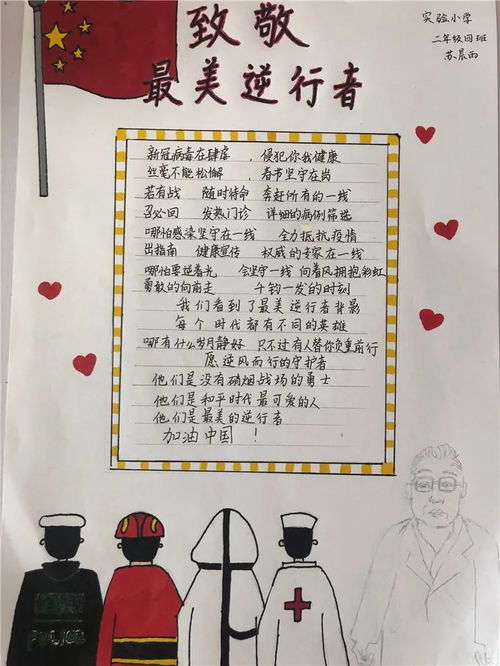 致敬
最美逆行者
实验小学
二年级四班
苏晨雨
新冠病毒在肆虐 , 侵犯你我健康
丝毫不能松懈 , 春节坚守在岗
若有战 随时待命 奔赶所有的一线
召必回 发热门诊 详细的病例筛选
哪怕感染坚守在一线 全力抵抗疫情
出指南 健康宣传 权威的专家在一线
哪怕要逆着光 会坚守一线 向着风拥抱彩虹
勇敢的向前走 千钧一发的时刻
我们看到了最美逆行者背影
每个时代都有不同的英雄
哪有什么岁月静好 只不过有人替你负重前行
愿逆风而行的守护者
他们是没有硝烟战场的勇士
他们是和平时代最可爱的人
他们是最美的逆行者
加油中国 !
POLICE